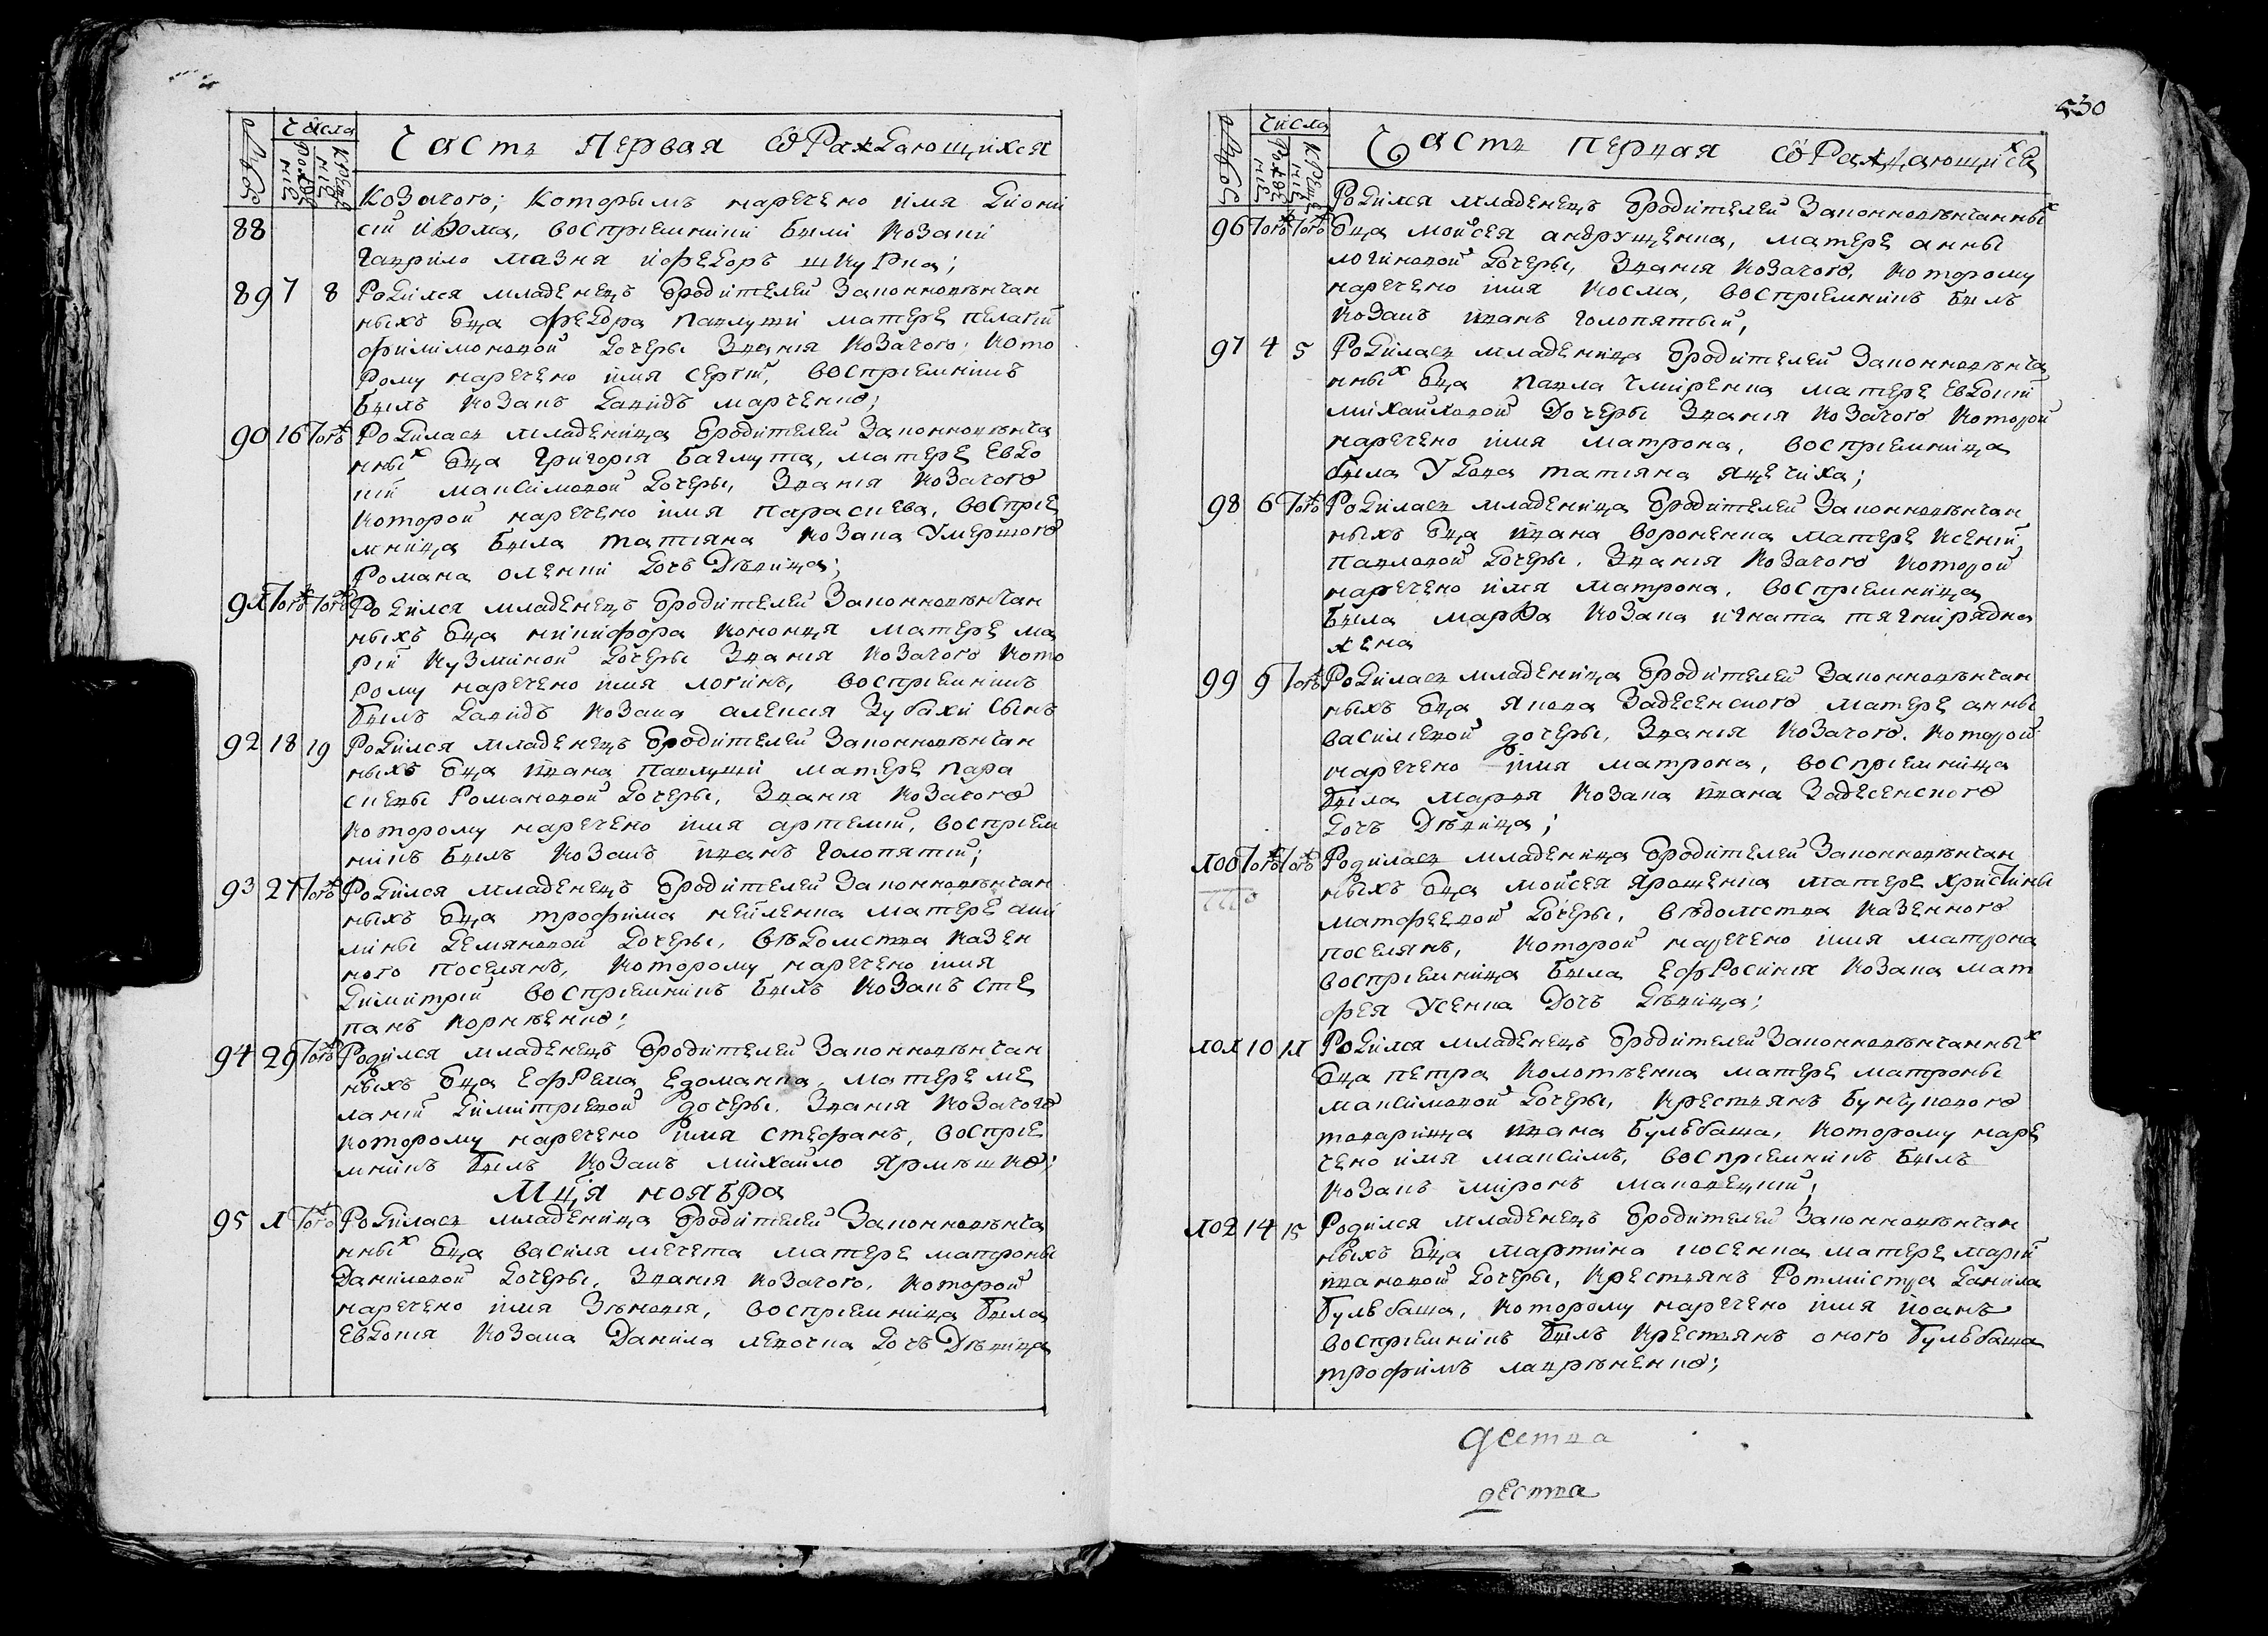 Числа
Часть Первая ѿ Раждающихся
козачого; которым наречено имя Диони
88 сій и Ѳома, восприемники были козаки
Гаврило мазня и феодоръ шкурка;
89 7 8 Родился младенецъ ѿ родителей законновѣнчан
ныхъ ѿца феодора павлущи матере пелагіи
филимоновой дочеры звания козачого; кото
рому наречено имя сергій, восприемникъ
былъ козакъ давидъ марченко;
90 16 Того Родилась младеница ѿ родителей законновѣнча
нных ѿца григория баглута, матере евдо
кіи максимовой дочеры, звания козачого
которой наречено имя параскева, восприе
мница была татияна козака умершого
романа оленки дочъ дѣвица;
91 Тогож Тогож Родился младенецъ ѿ родителей законновѣнчан
ныхъ ѿца никифора кононця матере ма
ріи кузминой дочеры звания козачого кото
рому наречено имя логинъ, восприемникъ
былъ давидъ козака алексия зубахи сынъ
92 18 19 Родился младенецъ ѿ родителей законновѣнчан
ныхъ ѿца ивана павлущи матере пара
скевы романовой дочеры, звания козачого
которому наречено имя артемій, восприем
никъ былъ козакъ иванъ голопятій;
93 27 Тогож Родился младенецъ ѿ родителей законновѣнчан
ныхъ ѿца трофима нейленка матере аки
лины демяновой дочеры, вѣдомства казен
ного поселянъ, которому наречено имя
димитрій восприемникъ былъ козакъ сте
панъ корнѣенко;
94 29 Тогож Родился младенецъ ѿ родителей законновѣнчан
ныхъ ѿца ефрема едоманка, матере ме
ланіи димитриевой дочеры, звания козачого
которому наречено имя стефанъ, восприе
мникъ былъ козакъ михайло ярмѣшко;
Мця ноября
95 1 Того Родилась младеница ѿ родителей законновѣнча
нных ѿца василя мечета матере матроны
даниловой дочеры, звания козачого, которой
наречено имя зѣновия, восприемница была
евдокия козака данила левочка дочъ дѣвица
530
Числа
Часть первая ѿ Раждающихся
Родился младенецъ ѿ родителей законновѣнчанных
96 Тогож Тогож ѿца мойсея андрущенка, матере анны
логиновой дочеры, звания козачого, которому
наречено имя косма, восприемникъ былъ
козакъ иванъ голопятый,
97 4 5 Родилась младеница ѿ родителей законновѣнча
нных ѿца павла чмиренка матере евдокіи
михайловой дочеры звания козачого которой
наречено имя матрона, восприемница
была удова татияна яцечиха;
98 6 Тогож Родилась младеница ѿ родителей законновѣнчан
ныхъ ѿца ивана вороненка матере ксеніи
павловой дочеры, звания козачого которой
наречено имя матрона, восприемница
была марѳа козака игната тягнирядна
жена
99 9 Тогож Родилась младеница ѿ родителей законновѣнчан
ныхъ ѿца якова задесенского матере анны
василиевой дочеры, звания козачого, которой
наречено имя матрона, восприемница
была мария козака ивана задесенского
дочъ дѣвица;
100 Тогож Тогож Родилась младеница ѿ родителей законновѣнчан
ныхъ ѿца мойсея ярощенка матере христины
матфеевой дочеры, вѣдомства казенного
поселянъ, которой наречено имя матрона
восприемница была ефросиния козака мат
фея усенка дочъ дѣвица;
101 10 11 Родился младенецъ ѿ родителей законновѣнчанных
ѿца петра колотѣенка матере матроны
максимовой дочеры, крестянъ бунчукового
товарища ивана бульбаша, которому наре
чено имя максимъ, восприемникъ былъ
козакъ миронъ маковецкій;
102 14 15 Родился младенецъ ѿ родителей законновѣнчан
ныхъ ѿца мартина косенка матере маріи
ивановой дочеры, крестянъ ротмистра данила
бульбаша, которому наречено имя иоанъ
восприемникъ былъ крестянъ оного бульбаша
трофимъ лавренѣнко;